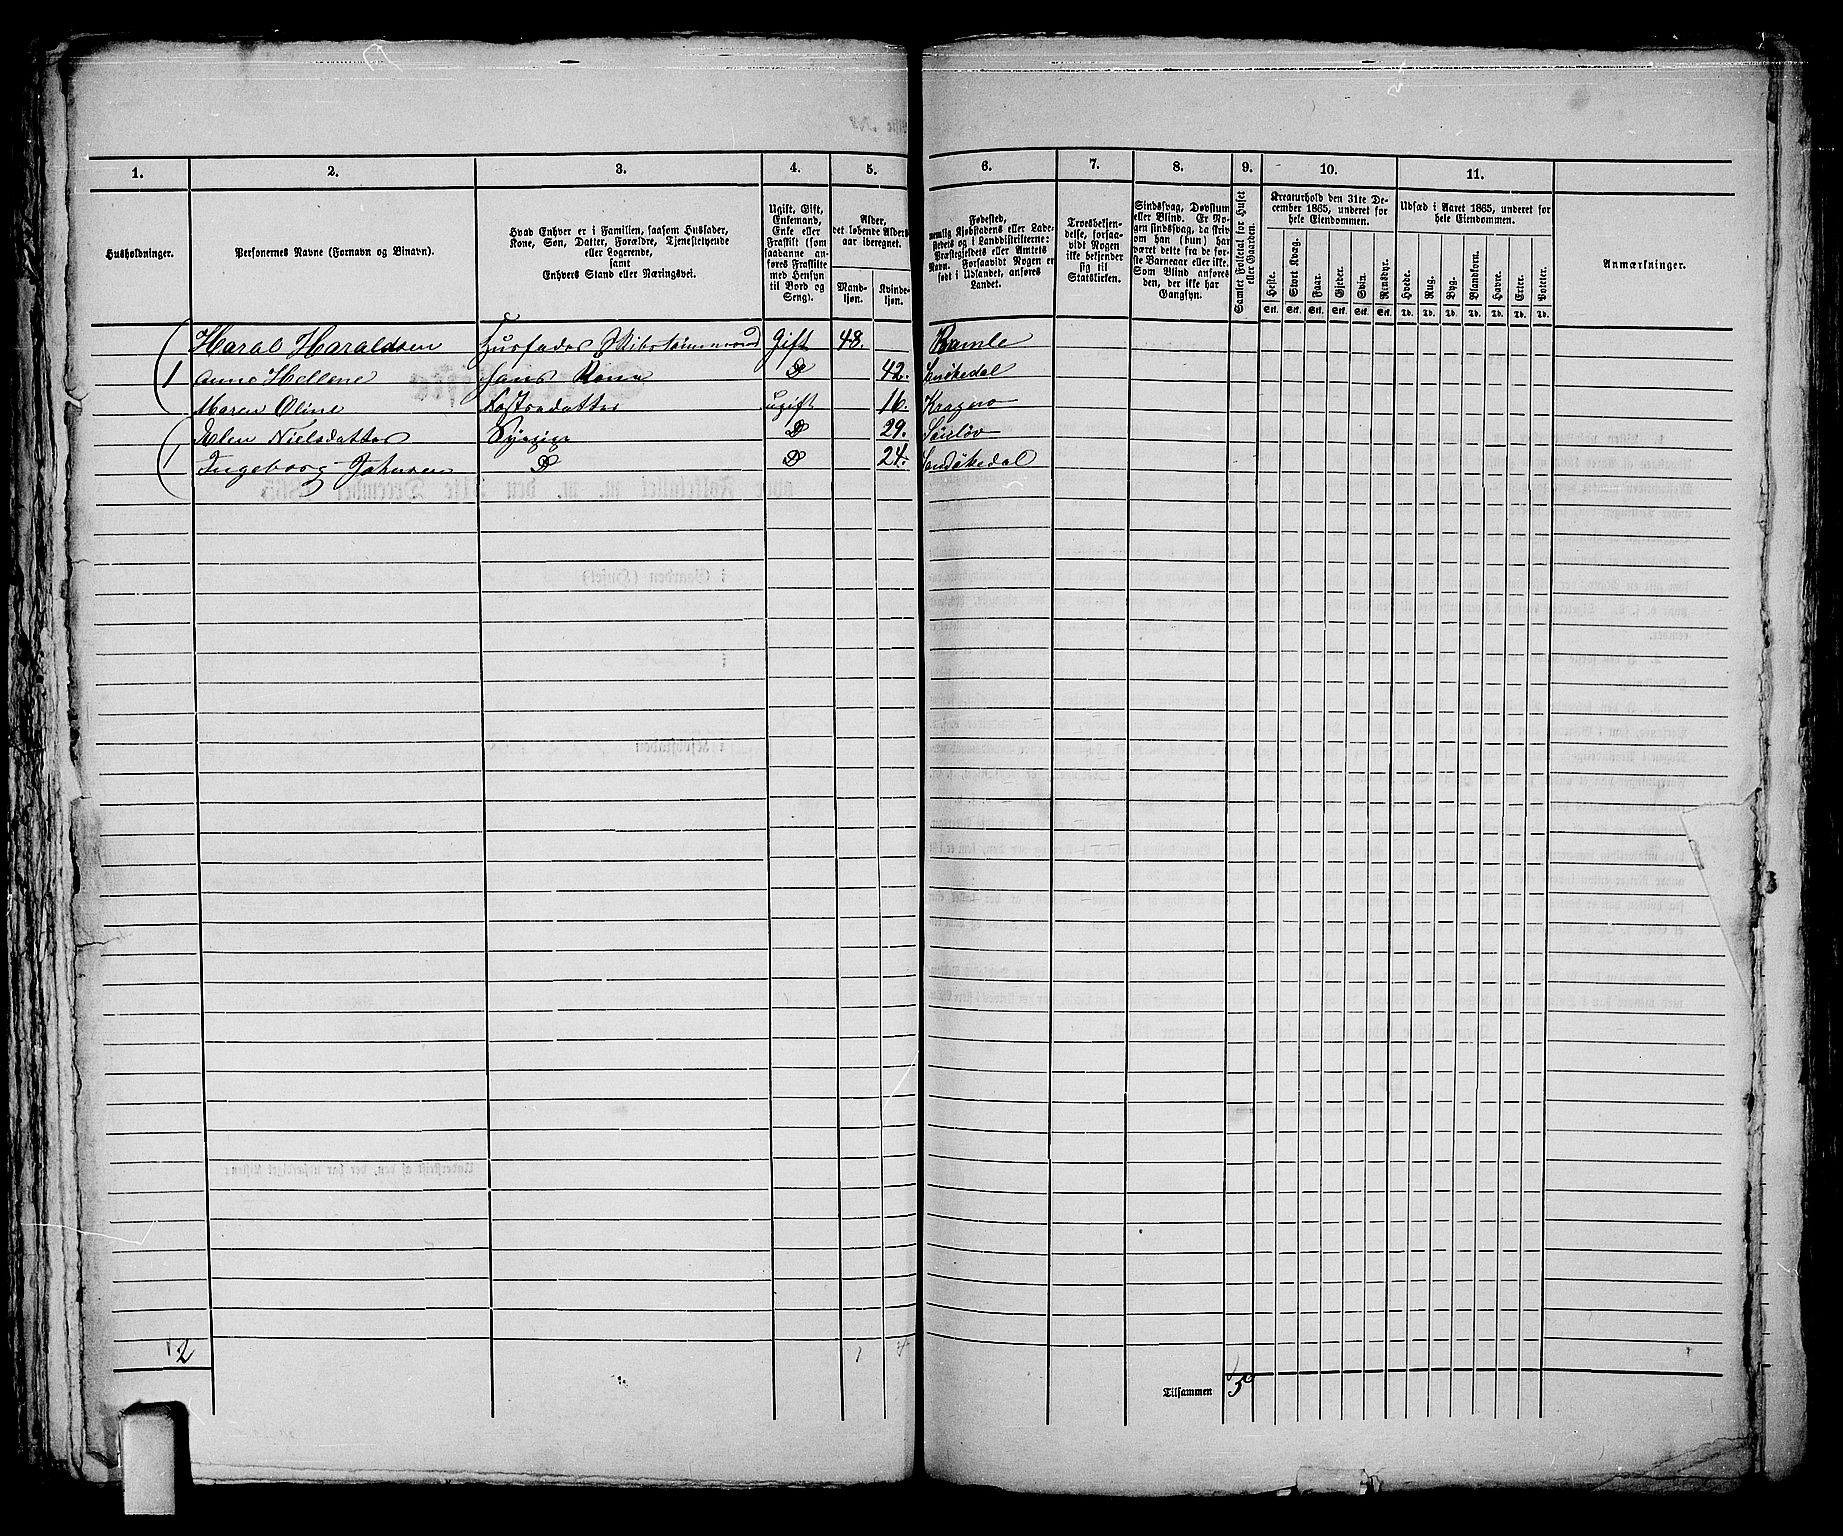 1. 2. 3. 4. 5. 6. 7. 8. 9. 10. 11.
Husholdninger.
Personernes Navne (Fornavn og Binavn).
Hvad Enhver er i Familien, saasom Husfader,
Kone, Søn, Datter, Forældre, Tjenestetyende
eller Logerende,
samt
Enhvers Stand eller Næringsvei.
Ugift, Gift,
Enkemand,
Enke eller
Fraskilt (som
saadanne an-
føres Fraskilte
med Hensyn
til Bord og
Seng).
Alder,
det løbende Alders-
aar iberegnet.
Mand-
kjøn.
Kvinde-
kjøn.
Fødested,
nemlig Kjøbstadens eller Lade-
stedets og i Landdistrikterne:
Præstegjeldets eller Amtets
Navn. Forsaavidt Nogen er
født i Udlandet, anføres
Landet.
Troesbekjen-
delse, forsaa-
vidt Nogen
ikke bekjender
sig til
Statskirken.
Sindssvag, Døvstum
eller Blind. Er No-
gen sindssvag, da skriv
om han (hun) har
været dette fra de før-
ste Barneaar eller ikke.
Som Blind anføres
den, der ikke har
Gangsyn.
Samlet Folketal for Huset
eller Gaarden.
Kreaturhold den 31te De-
cember 1865, underet for
hele Eiendommen.
Heste. Stort Kvæg. Faar. Gjeder. Svin. Rensdyr.
Stk. Stk. Stk. Stk. Stk. Stk.
Udsæd i Aaret 1865, underet for
hele Eiendommen.
Hvede. Rug. Byg. Blandkorn. Havre. Erter. Poteter.
Td. Td. Td. Td. Td. Td. Td.
Anmærkninger.
Haral Haraldsen Husfader Skibstømmermand Gift 48. Bamle
1 Anne Hellene hans Kone D 42.
Maren Oline Datter ugift 16. Kragerø
1 Elen Nielsdatter Syepige D 29.
Ingeborg Johnsen D D 24. Sandøkedal
2 1 4
Tilsammen 5